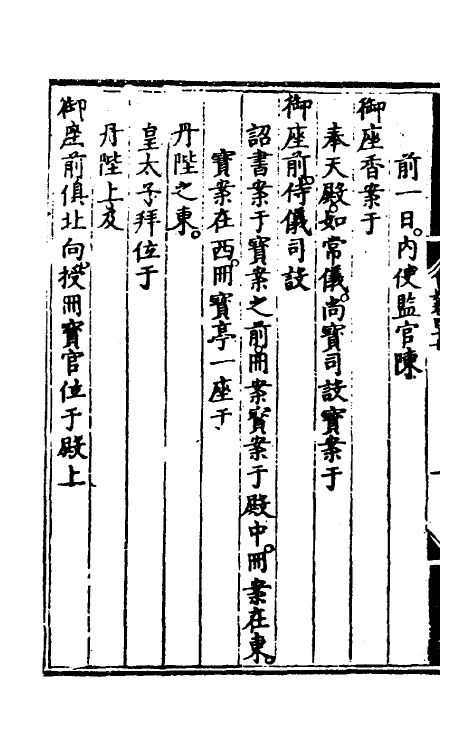 前一日。內使監官陳
御座香案于
奉天殿。如常儀。尚寶司設寶案于
御座前。侍儀司設
詔書案于寶案之前。冊案寶案于殿中。冊案在東。
寶案在西。冊寶亭一座于
丹陛之東。
皇太子拜位于
丹陛上及
御座前俱北向。授冊寶官位于殿上